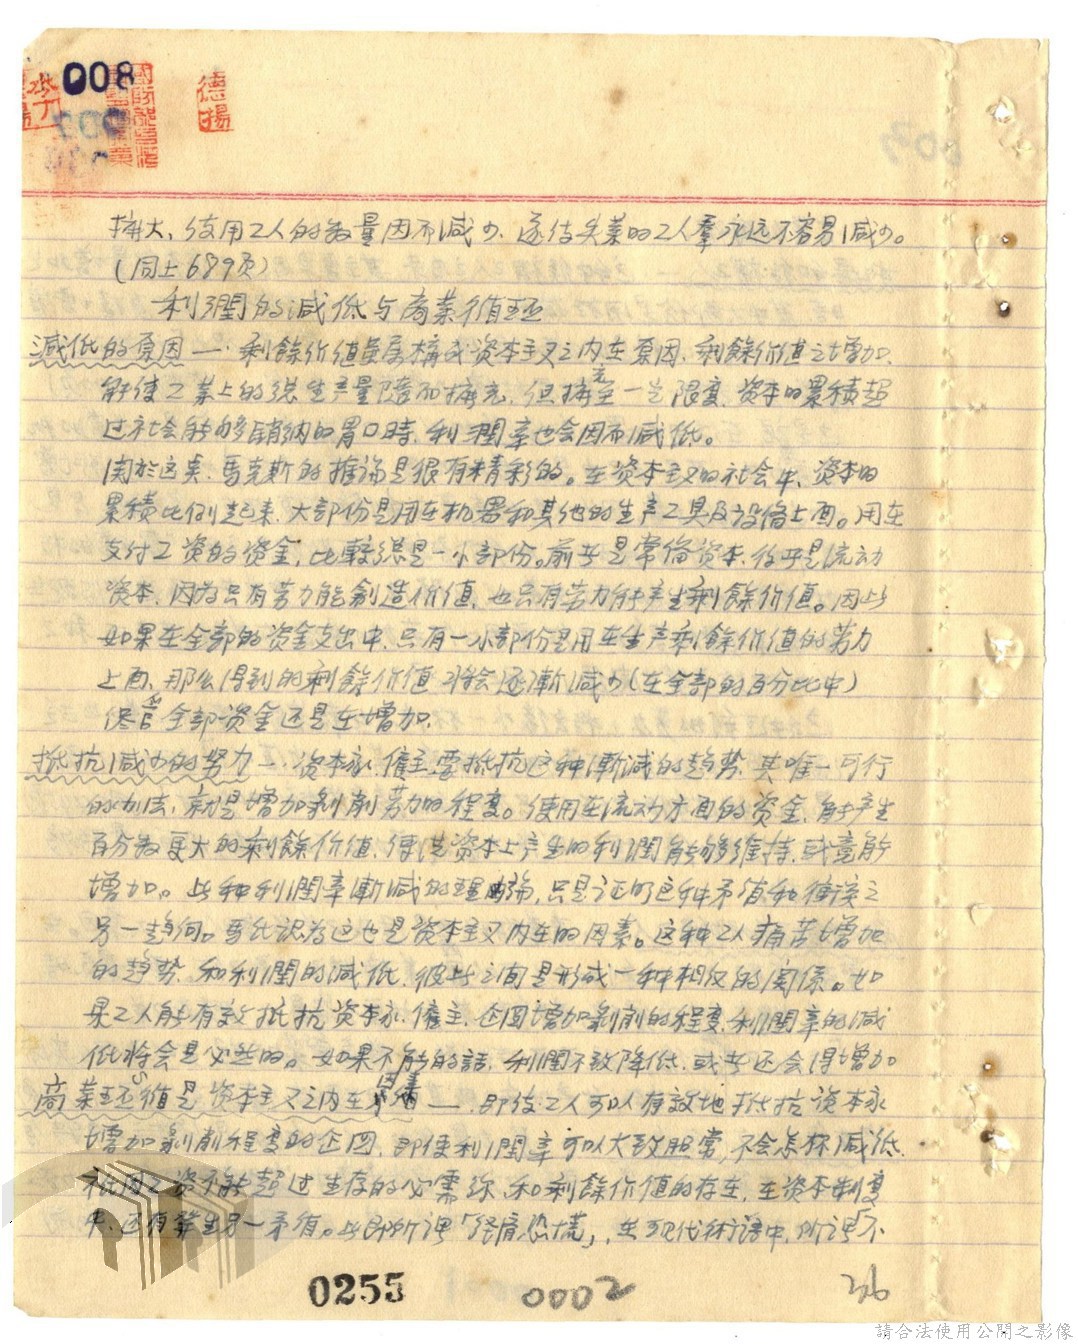 008
德
揚
003
擴大、使用工人的數量因而減少、遂使失業的工人羣永远不容易減少。
(同上689页)
利潤的減低与商業循环
減低的原因一．剩餘价值構成资本主义之内在原因．剩餘价值之增加、
能使工業上的総生产量隨而擴充．但擴充至一定限度．资本的累積超
过社会能够銷納的胃口時．利潤率也会因而減低。
関於这点．馬克斯的推論是很有精彩的。在资本主义的社会中．资本的
累積比例起来．大部份是用在机器和其他的生产工具及設備上面。用在
支付工资的资金．比較総是一小部份。前者是常備资本．後者是流动
资本．因为只有劳力能創造价值．也只有劳力能产生剩餘价值。因此
如果在全部的资金支出中．只有一小部份是用在生产剩餘价值的劳力
上面．那么得到的剩餘价值将会逐漸減少(在全部的百分比中)
儘管全部资金还是在增加．
抵抗減少的努力一．资本家僱主要抵抗这种漸減的趋势．其唯一可行
的办法．就是增加剝削劳力的程度。使用在流动方面的资金．能产生
百分数更大的剩餘价值．使其资本上产生的利潤能够維持．或竟能
增加。此种利潤率漸減的理論．只是证明这种矛盾和衝突之
另一趋向。馬氏認为这也是资本主义内在的因素。这种工人痛苦增加
的趋势．和利潤的減低．彼此之间是形成一种相反的関係。如
果工人能有效抵抗资本家僱主．企図增加剝削的程度．利潤率的減
低将会是必然的。如果不能的話．利潤不致降低．或者还会得增加
商業环循是资本主义之内在因素一．即使工人可以有效地抵抗资本家
增加剝削程度的企図．即使利潤率可以大致照常．不会怎樣減低．
祗因工资不能超过生存的必需線．和剩餘价值的存在．在资本制度
中．还有發生另一矛盾。此即所谓「経済恐慌」．在现代術語中．所谓「不
0255
0002
26
請合法使用公開之影像